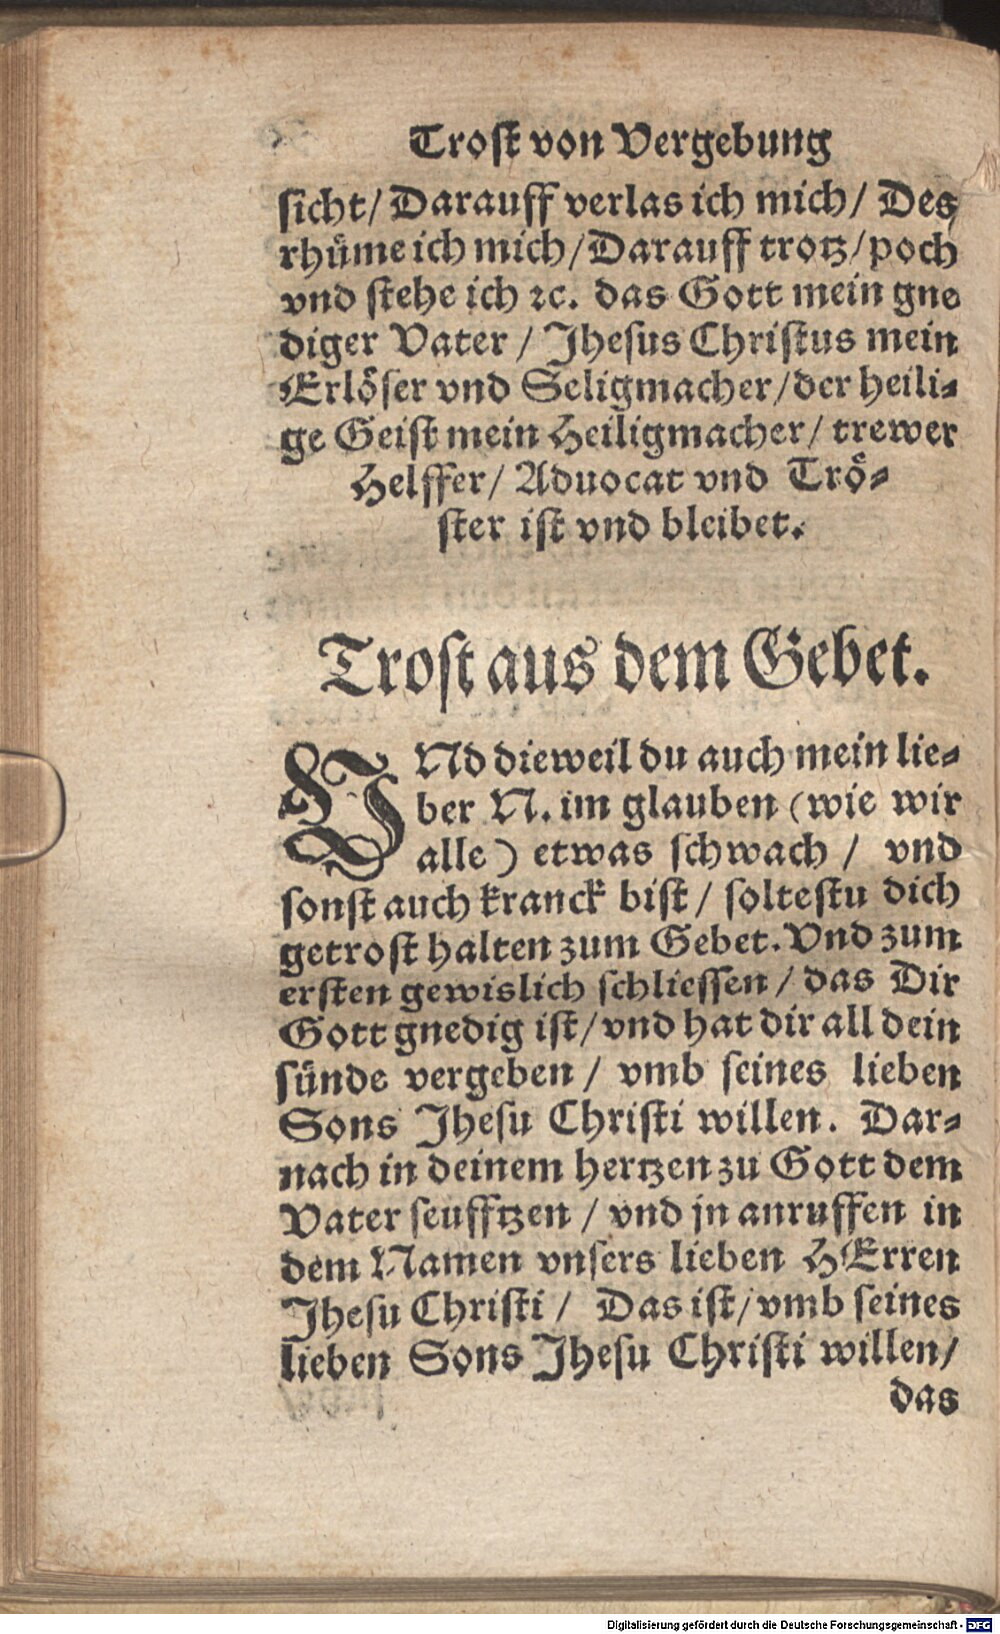 Trost von Vergebung
sicht/ Darauff verlas ich mich/ Des
rhüme ich mich/Darauff trotz/poch
vnd stehe ich ꝛc. das Gott mein gne
diger Vater / Jhesus Christus mein
Erlöser vnd Seligmacher/der heili⸗
ge Geist mein Heiligmacher/ trewer
Helffer/ Aduocat vnd Trö⸗
ster ist vnd bleibet.
Trost aus dem Gebet.
VNd dieweil du auch mein lie⸗
ber N. im glauben (wie wir
alle) etwas schwach / vnd
sonst auch kranck bist / soltestu dich
getrost halten zum Gebet. Vnd zum
ersten gewislich schliessen / das Dir
Gott gnedig ist/ vnd hat dir all dein
sünde vergeben / vmb seines lieben
Sons Jhesu Christi willen. Dar⸗
nach in deinem hertzen zu Gott dem
Vater seufftzen / vnd jn anruffen in
dem Namen vnsers lieben HErren
Jhesu Christi / Das ist/ vmb seines
lieben Sons Jhesu Christi willen/
das
Digitalisierung gefördert durch die Deutsche Forschungsgemeinschaft - DFG